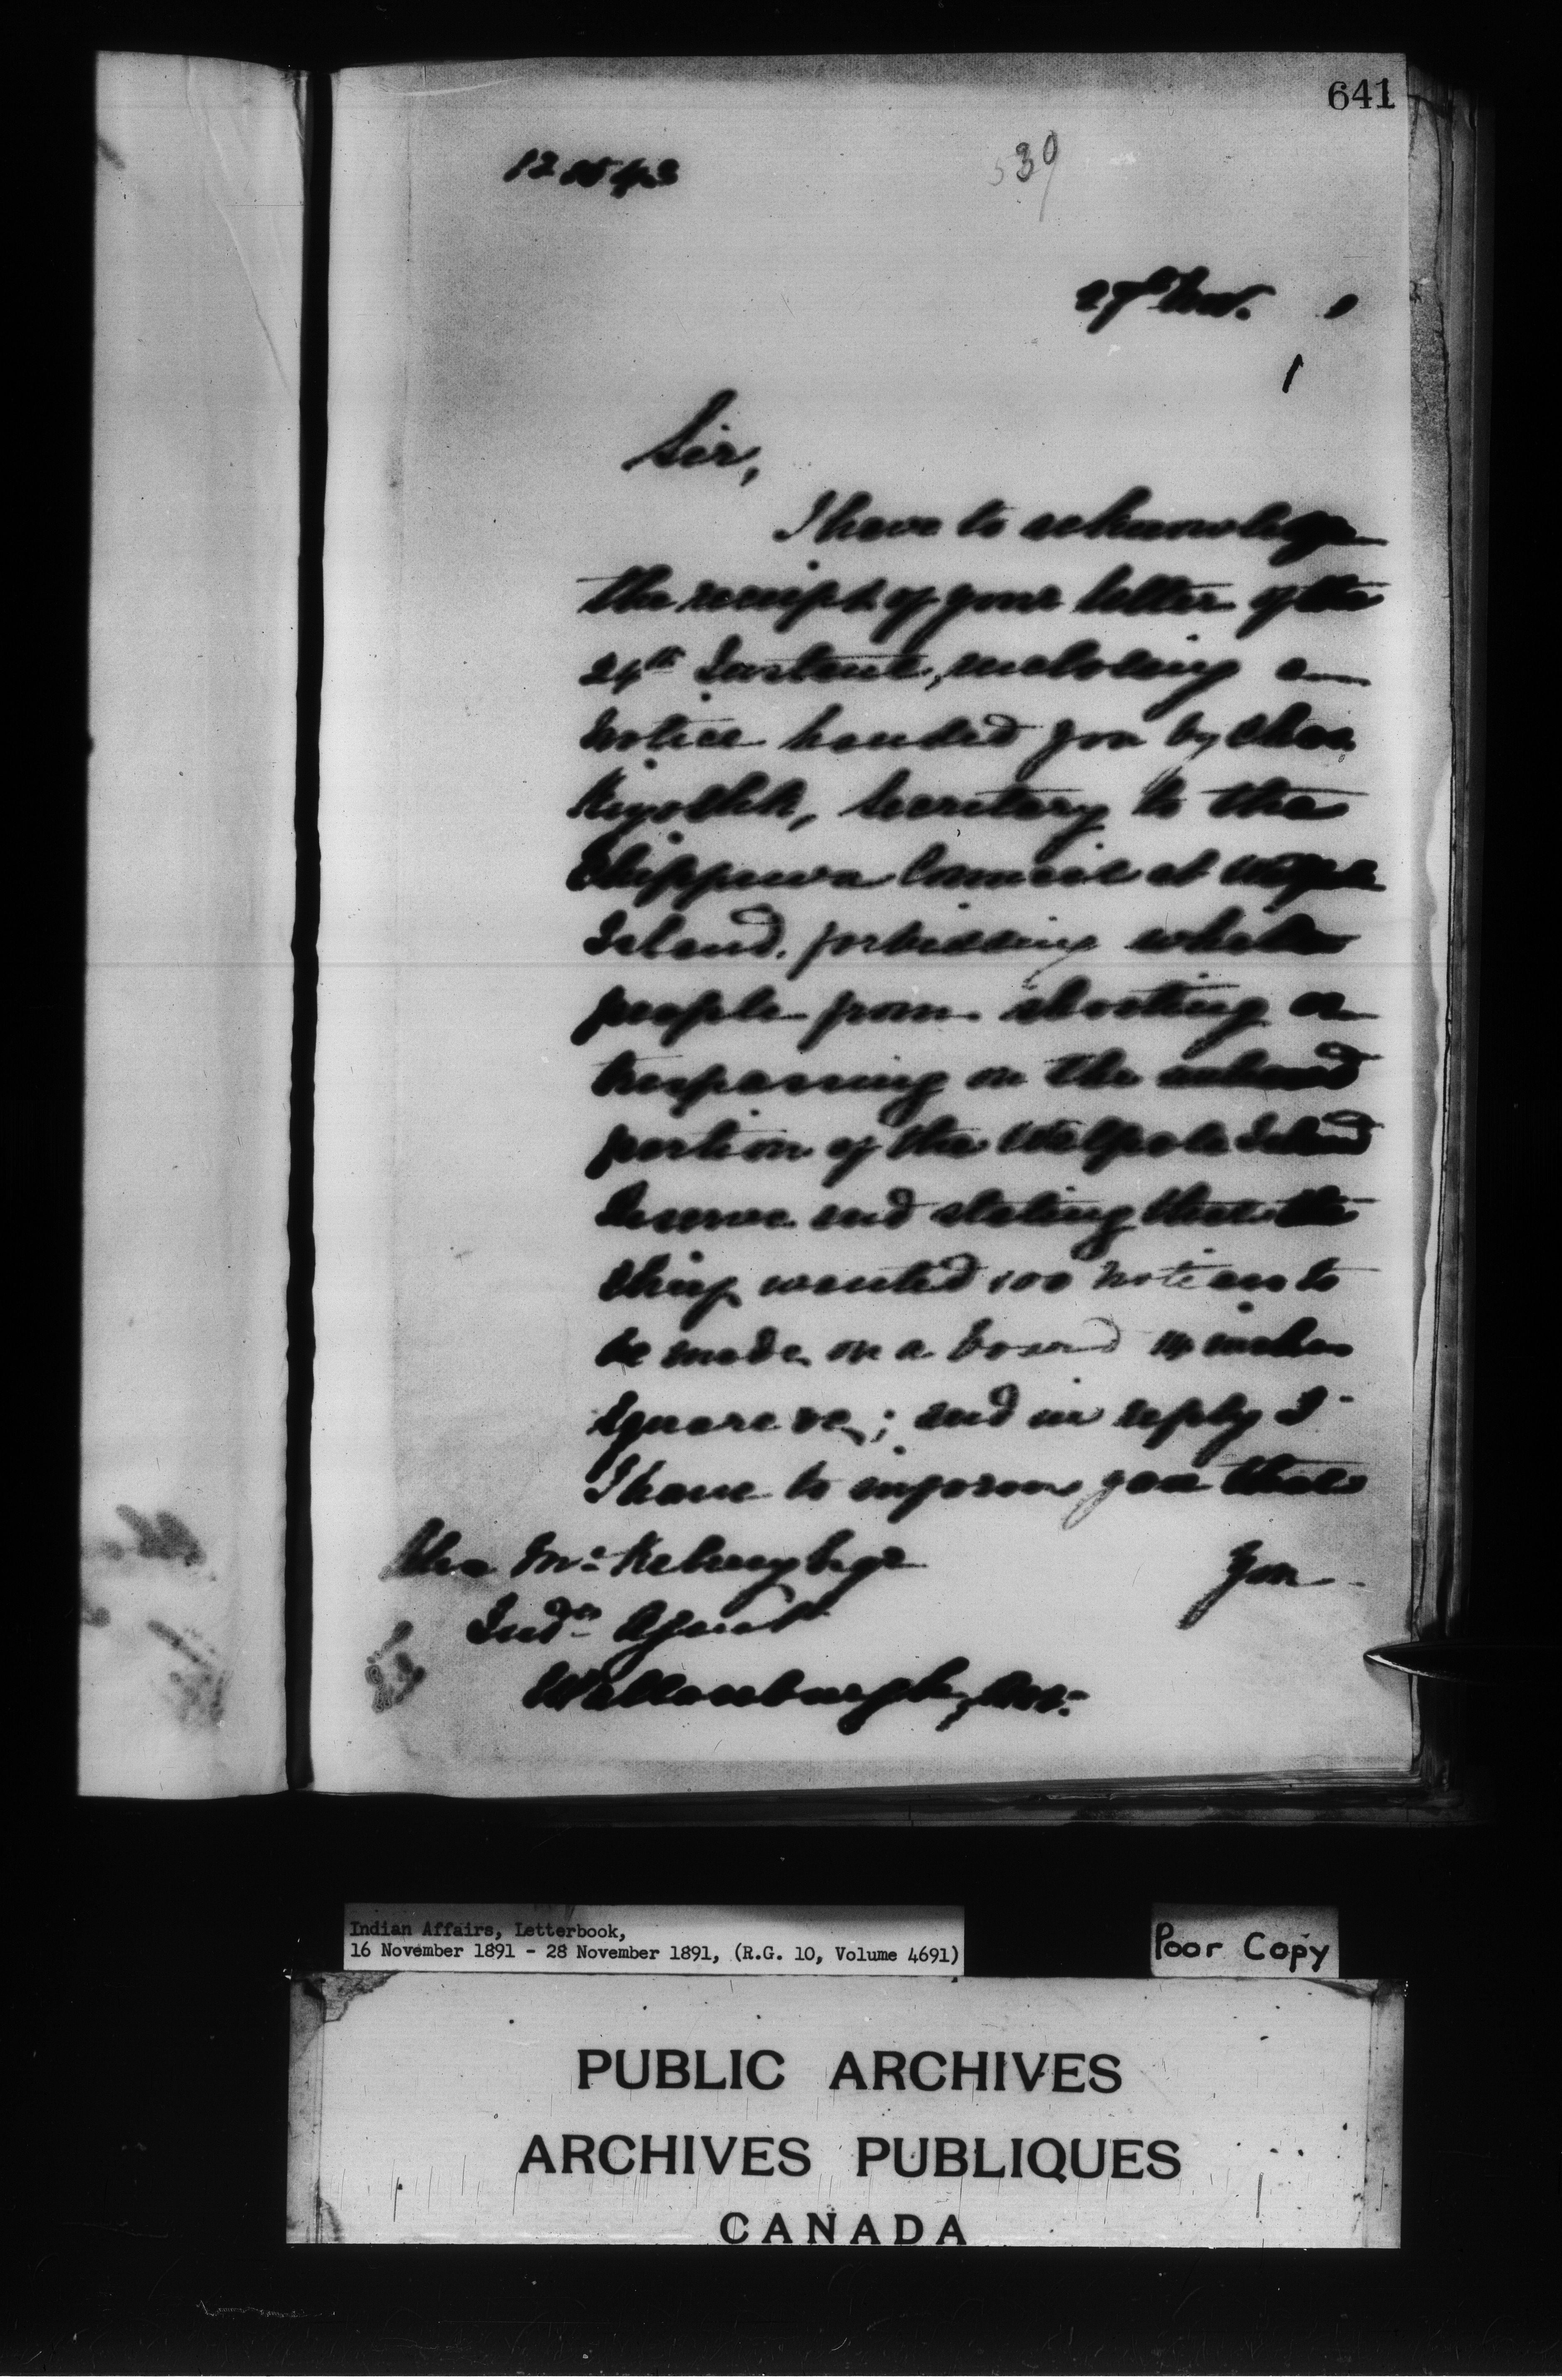 641
539
27th Nov. 1
Sir,
I have to acknowledge
the receipt of your letter of the
24th Instant, enclosing a
notice handed you by Chas.
Kiyoshk, Secretary to the
Chippewa Council at Walpole
Island, forbidding white
people from shooting or
trespassing on the unleased
portion of the Walpole Island
Reserve and stating that the
Chief wanted 100 notices to
be made on a board 14 inches
square &c; and in reply I
I have to inform you that
you
Alex McKelvey Esqr
Indn Agent
Wallaceburgh, Ont.
Indian Affairs, Letterbook,
16 November 1891 - 28 November 1891, (R.G. 10, Volume 4691)
Poor Copy
PUBLIC ARCHIVES
ARCHIVES PUBLIQUES
CANADA